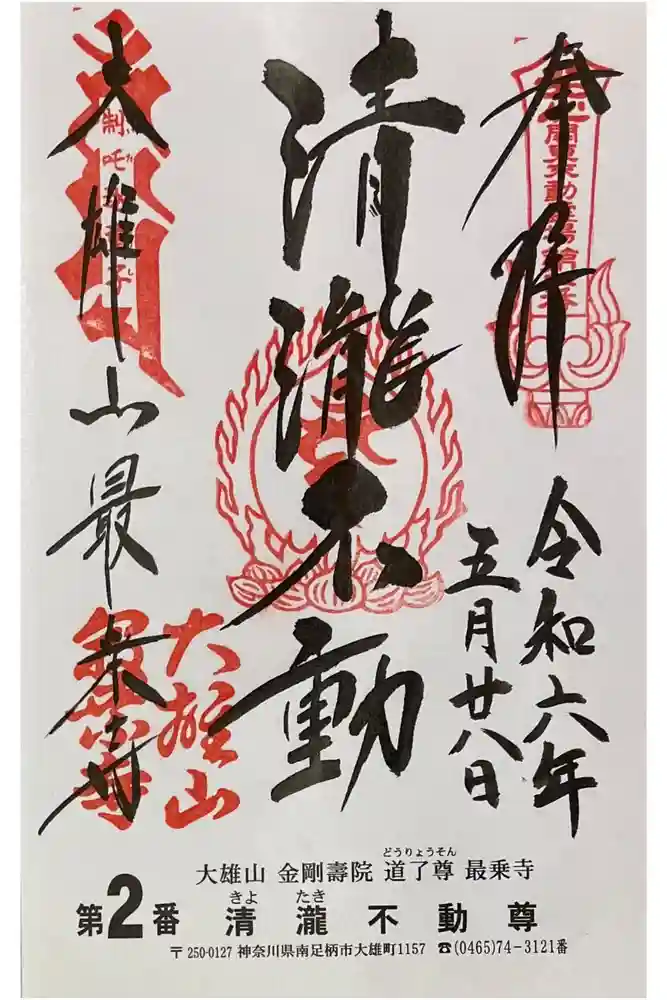 奉拝
令和六年
五月廿八日
清瀧不動
大雄山最乗寺
制吒迦童子
大雄山
最乗寺
どうりょうそん
大雄山 金剛壽院 道了尊 最乗寺
きよ たき
第2番 清瀧不動尊
〒250-0127 神奈川県南足柄市大雄町1157 ☎(0465)74-3121番